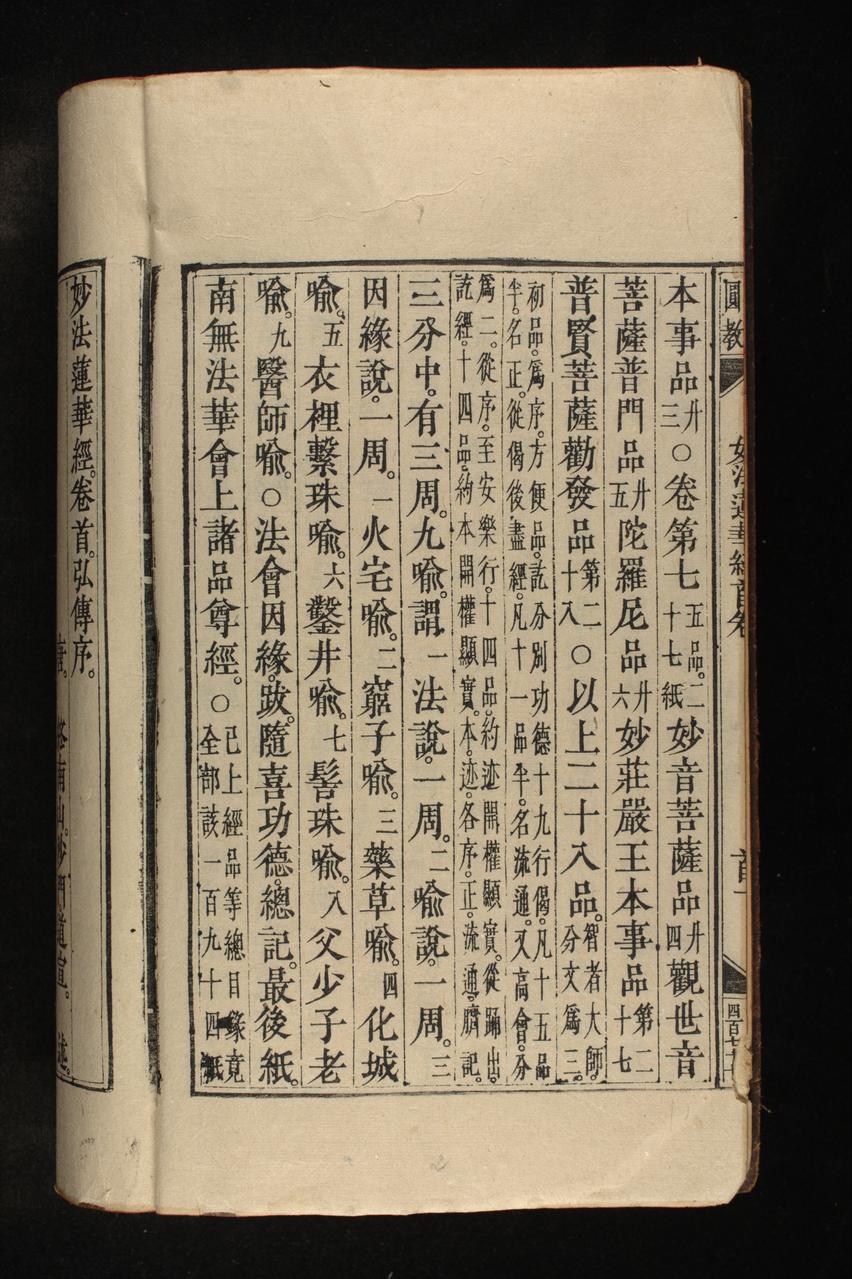 圓教
妙法蓮華經首卷
首一
四百七十七
本事品廿三〇卷第七五品。二十七紙妙音菩薩品廿四觀世音
菩薩普門品廿五陀羅尼品廿六妙莊嚴王本事品第二十七
普賢菩薩勸發品第二十八〇以上二十八品。智者大師。分文爲三。
初品。爲序。方便品。訖分別功德十九行偈。凡十五品
半。名正。從偈後盡經。凡十一品半。名流通。又高會。分
爲二。從序。至安樂行。十四品。約迹開權顯實。從踊出。
訖經。十四品。約本開權顯實。本。迹。各序。正。流通。臍記。
三分中。有三周。九喩。謂一法說。一周。二喩說。一周。三
因緣說。一周。一火宅喩。二窮子喩。三藥草喩。四化城
喩。五衣裡繫珠喩。六鑿井喩。七髻珠喩。八父少子老
喩。九醫師喩。〇法會因緣。跋。隨喜功德。總記。最後紙。
南無法華會上諸品尊經。〇已上經品等總目錄竟全部該一百九十四紙
妙法蓮華經。卷首。弘傳序。
唐。終南山。沙門道宣。述。